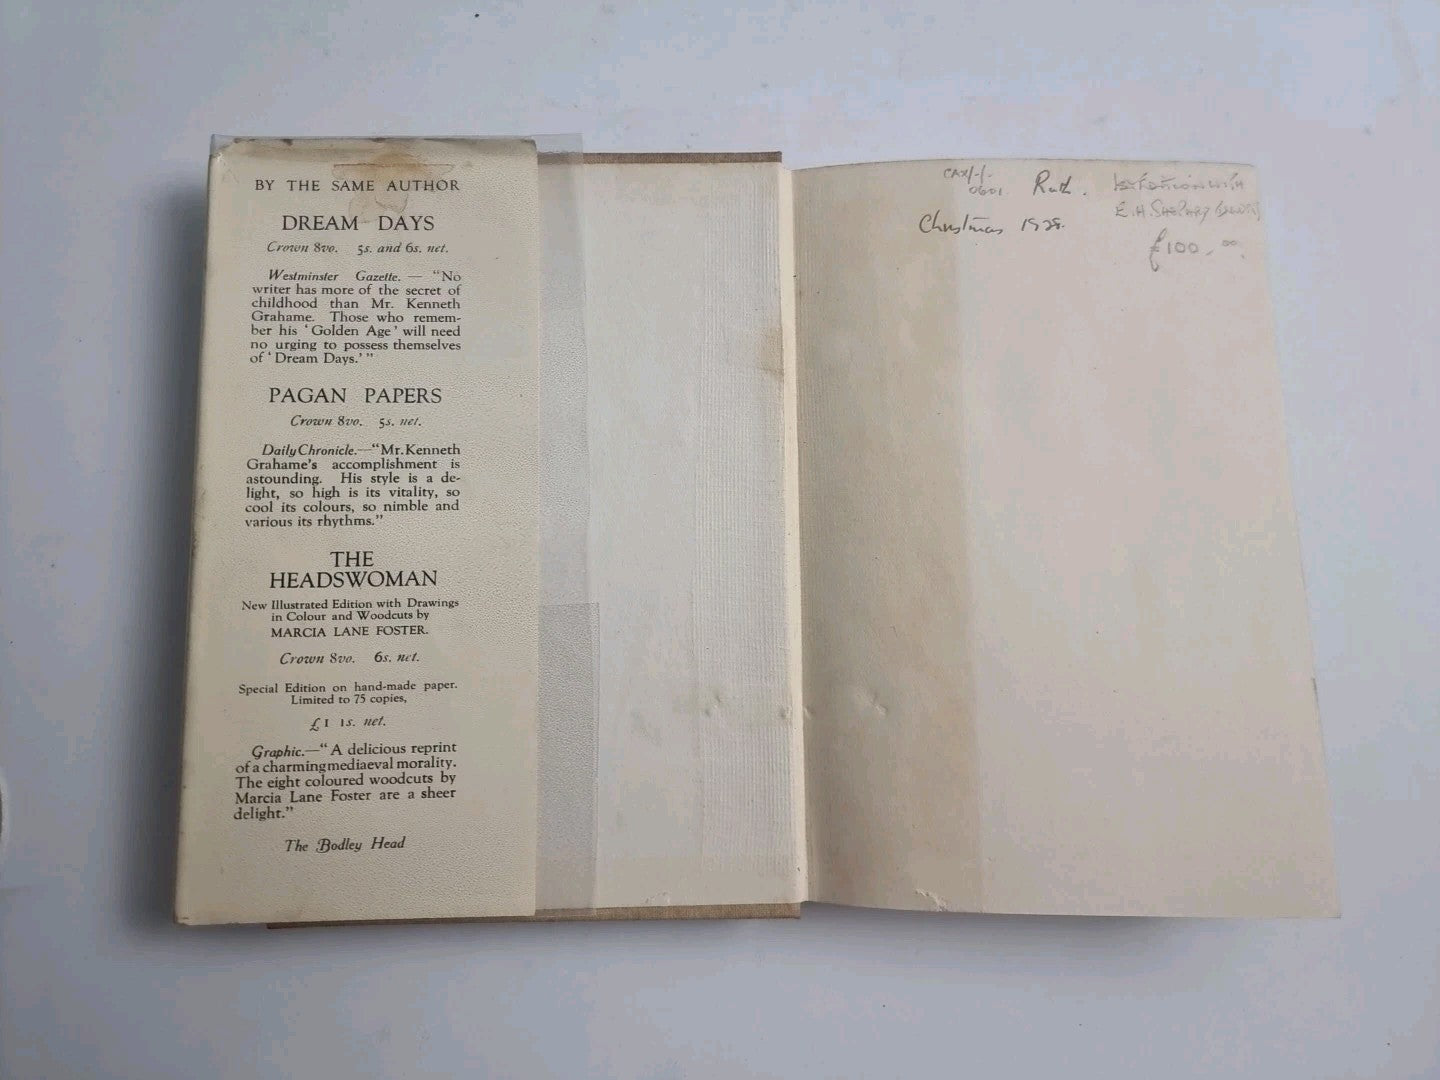 BY THE SAME AUTHOR
DREAM DAYS
Crown 8vo. 5s. and 6s. net.
Westminster Gazette. — "No
writer has more of the secret of
childhood than Mr. Kenneth
Grahame. Those who remem-
ber his 'Golden Age' will need
no urging to possess themselves
of 'Dream Days.'"
PAGAN PAPERS
Crown 8vo. 5s. net.
Daily Chronicle.—"Mr. Kenneth
Grahame's accomplishment is
astounding. His style is a de-
light, so high is its vitality, so
cool its colours, so nimble and
various its rhythms."
THE
HEADSWOMAN
New Illustrated Edition with Drawings
in Colour and Woodcuts by
MARCIA LANE FOSTER.
Crown 8vo. 6s. net.
Special Edition on hand-made paper.
Limited to 75 copies,
£1 1s. net.
Graphic.—"A delicious reprint
of a charming mediaeval morality.
The eight coloured woodcuts by
Marcia Lane Foster are a sheer
delight."
The Bodley Head
0601
Ruth.
Christmas 1928.
E.H. SHEPARD
£100.00